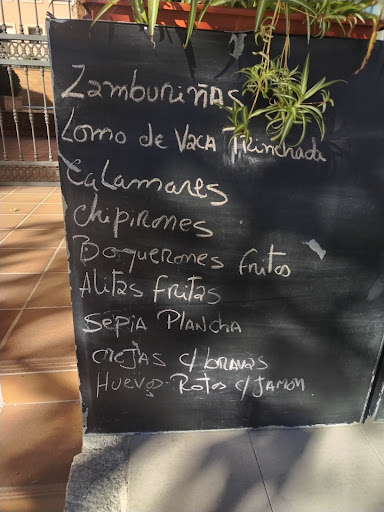 Zamburiñas
Lomo de Vaca Trinchada
Calamares
Chipirones
Boquerones fritos
Alitas fritas
Sepia Plancha
orejas c/bravas
Huevos Rotos c/Jamon